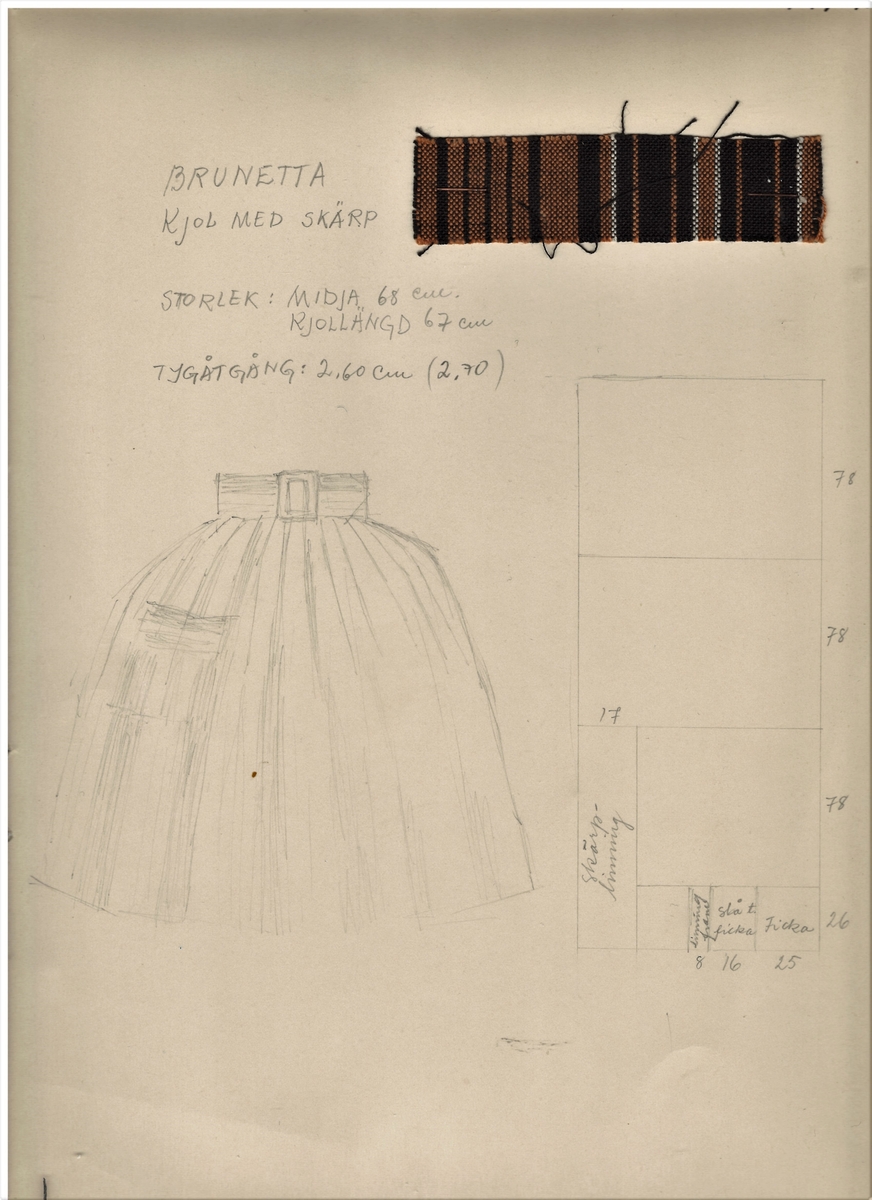 BRUNETTA
KJOL MED SKÄRP
STORLEK: MIDJA 68 cm.
KJOLLÄNGD 67 cm
TYGÅTGÅNG: 2,60 cm (2,70)
78
78
17
78
Skärp-
linning
linning
slå t.
ficka
Ficka
26
8 16 25